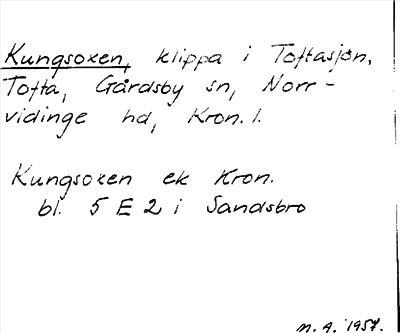 Kungsoxen, klippa i Toftasjön,
Tofta, Gårdsby sn, Norr-
vidinge hd, Kron. l.
Kungsoxen ek Kron.
bl. 5 E 2 i Sandsbro
M. A. 1957.